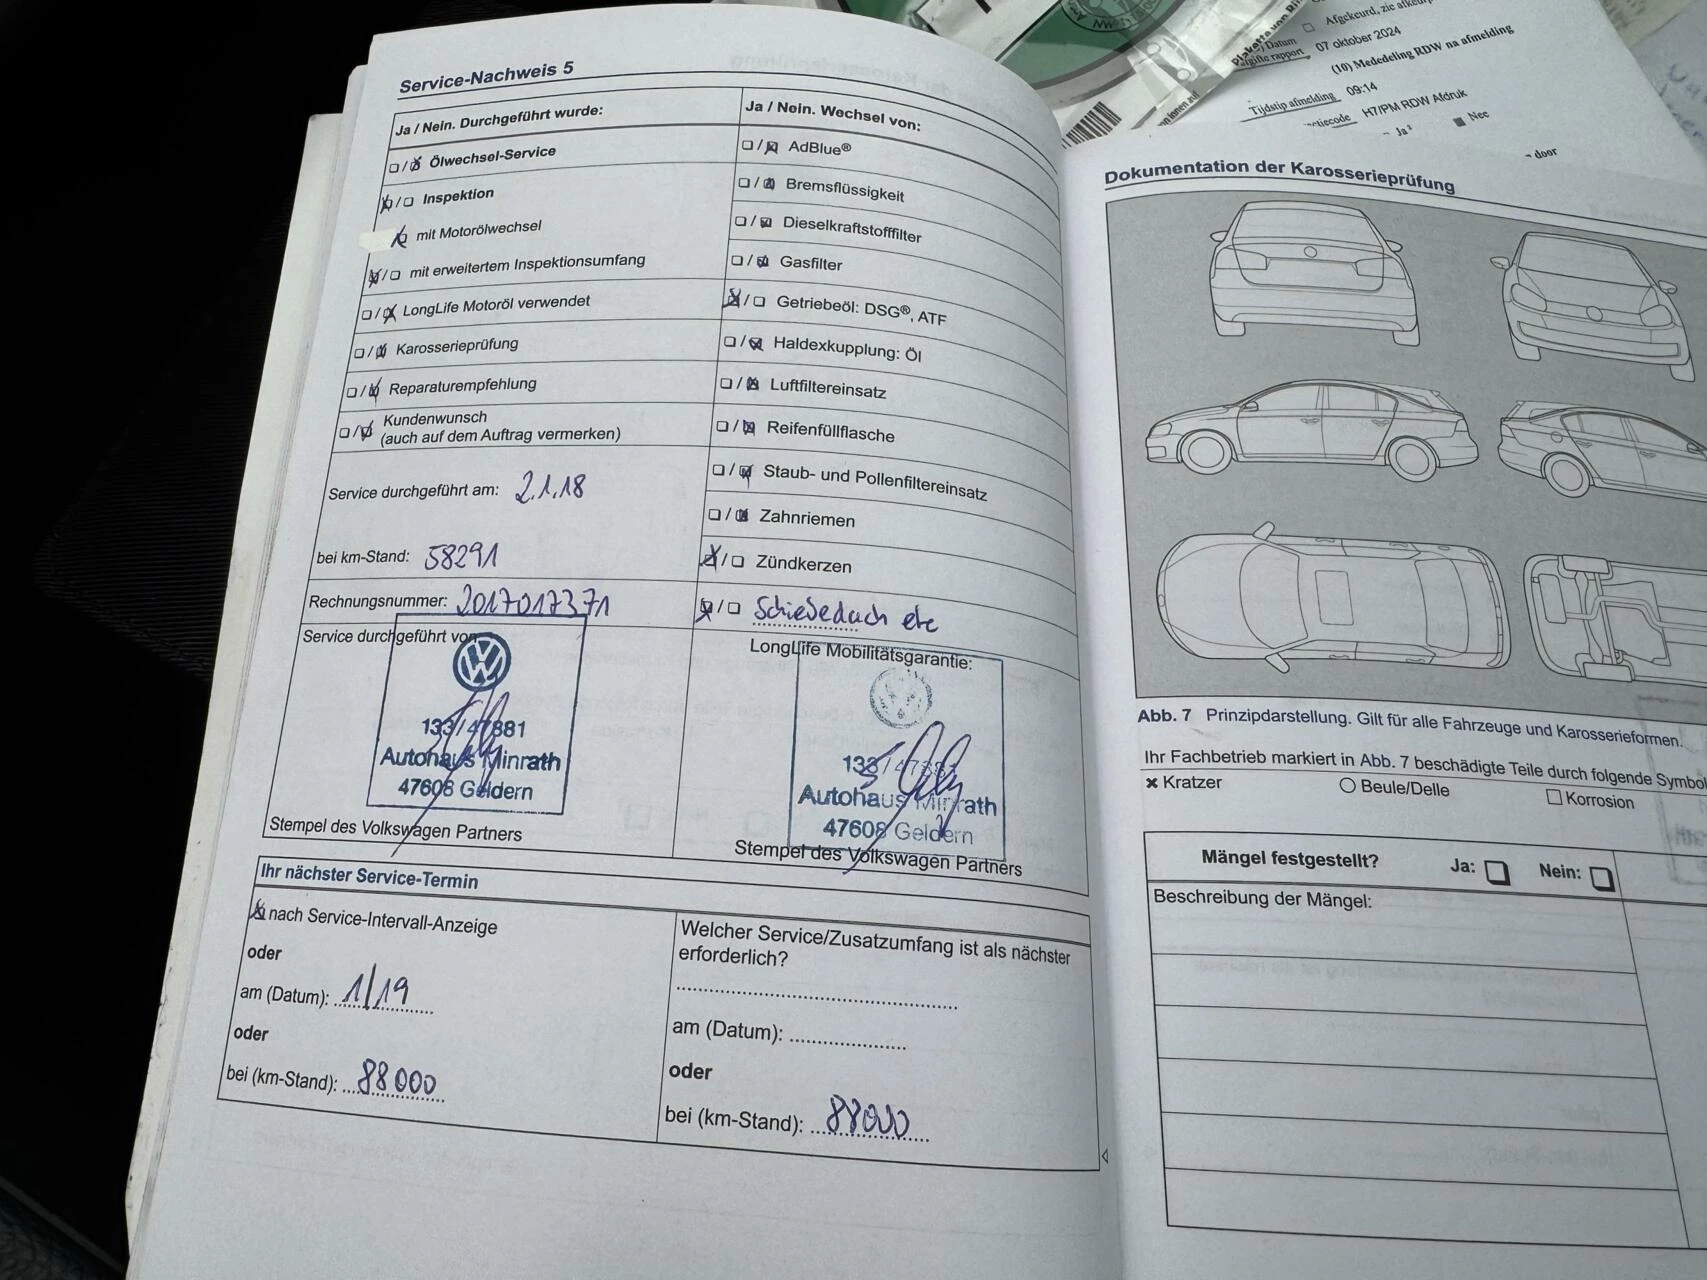 Service-Nachweis 5
Ja / Nein. Durchgeführt wurde:
☐/☒ Ölwechsel-Service
☒/☐ Inspektion
mit Motorölwechsel
☒/☐ mit erweitertem Inspektionsumfang
☐/☒ LongLife Motoröl verwendet
☐/☒ Karosserieprüfung
☐/☒ Reparaturempfehlung
☐/☒ Kundenwunsch
(auch auf dem Auftrag vermerken)
Service durchgeführt am: 2.1.18
bei km-Stand: 58291
Rechnungsnummer: 2017017371
Service durchgeführt von
133/47881
Autohaus Minrath
47608 Geldern
Stempel des Volkswagen Partners
Ja / Nein. Wechsel von:
☐/☒ AdBlue®
☐/☒ Bremsflüssigkeit
☐/☒ Dieselkraftstofffilter
☐/☒ Gasfilter
☒/☐ Getriebeöl: DSG®, ATF
☐/☒ Haldexkupplung: Öl
☐/☒ Luftfiltereinsatz
☐/☒ Reifenfüllflasche
☐/☒ Staub- und Pollenfiltereinsatz
☐/☒ Zahnriemen
☒/☐ Zündkerzen
☒/☐ Schiebedach etc
LongLife Mobilitätsgarantie:
133/47881
Autohaus Minrath
47608 Geldern
Stempel des Volkswagen Partners
Ihr nächster Service-Termin
☒ nach Service-Intervall-Anzeige
oder
am (Datum): 1/19
oder
bei (km-Stand): 88000
Welcher Service/Zusatzumfang ist als nächster
erforderlich?
am (Datum):
oder
bei (km-Stand): 88000
Afgekeurd, zie
Datum
afgifte rapport 07 oktober 2024
(10) Mededeling RDW na afmelding
Tijdstip afmelding 09:14
H7/PM RDW Afdruk
Ja
Nee
door
Dokumentation der Karosserieprüfung
Abb. 7 Prinzipdarstellung. Gilt für alle Fahrzeuge und Karosserieformen.
Ihr Fachbetrieb markiert in Abb. 7 beschädigte Teile durch folgende Symbo
× Kratzer ○ Beule/Delle ☐ Korrosion
Mängel festgestellt? Ja: ☐ Nein: ☐
Beschreibung der Mängel: